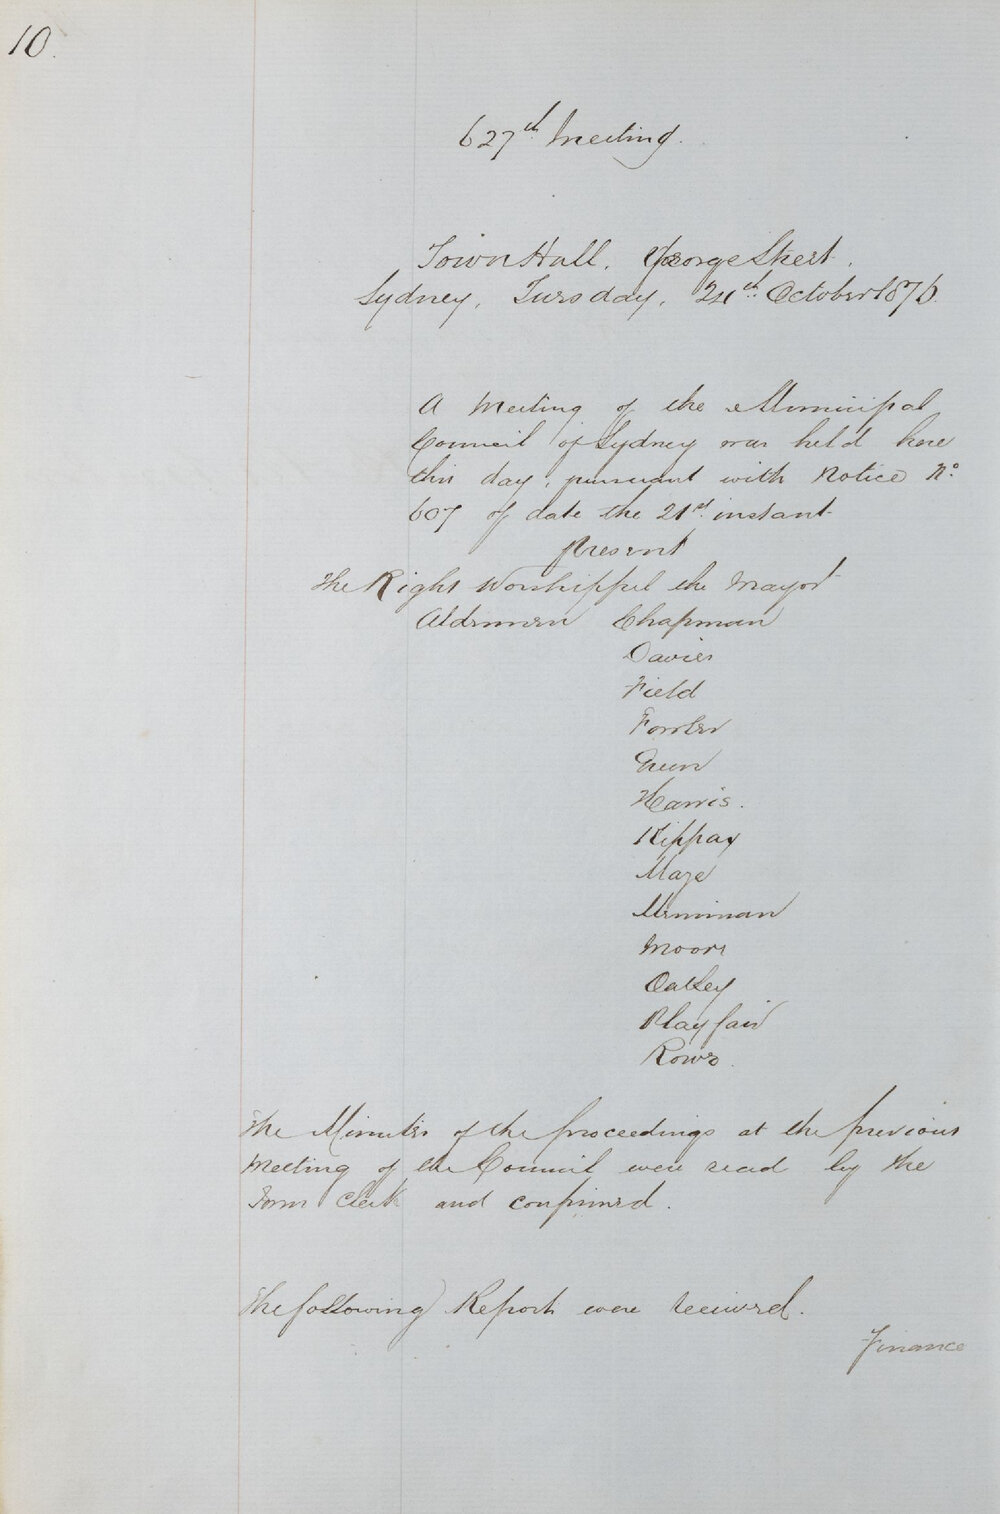 10.
627th Meeting.
Town Hall, George Street.
Sydney, Tuesday, 24th October 1876.
A Meeting of the Municipal
Council of Sydney was held here
this day, pursuant with Notice No.
607 of date the 21st instant
Present
The Right Worshipful the Mayor
Aldermen Chapman
Davies
Field
Fowler
Green
Harris.
Kippax
Maze
Merriman
Moore
Oatley
Playfair
Rowe.
The Minutes of the proceedings at the previous
Meeting of the Council were read by the
Town Clerk and confirmed.
The following Reports were received.
Finance